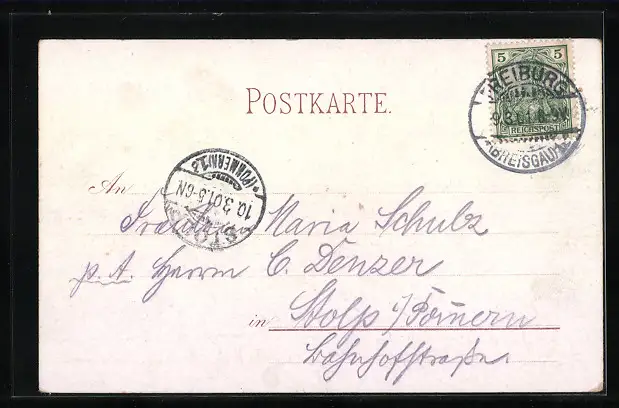 5 5
FREIBURG
REICHSPOST
(BREISGAU)
POSTKARTE.
(POMMERN) 1.
10.3.01.5-6N
STOLP
An
Fräulein Maria Schulz
p. A. Herrn C. Denzer
in Stolp i/Pom̅ern
Bahnhofstraße.